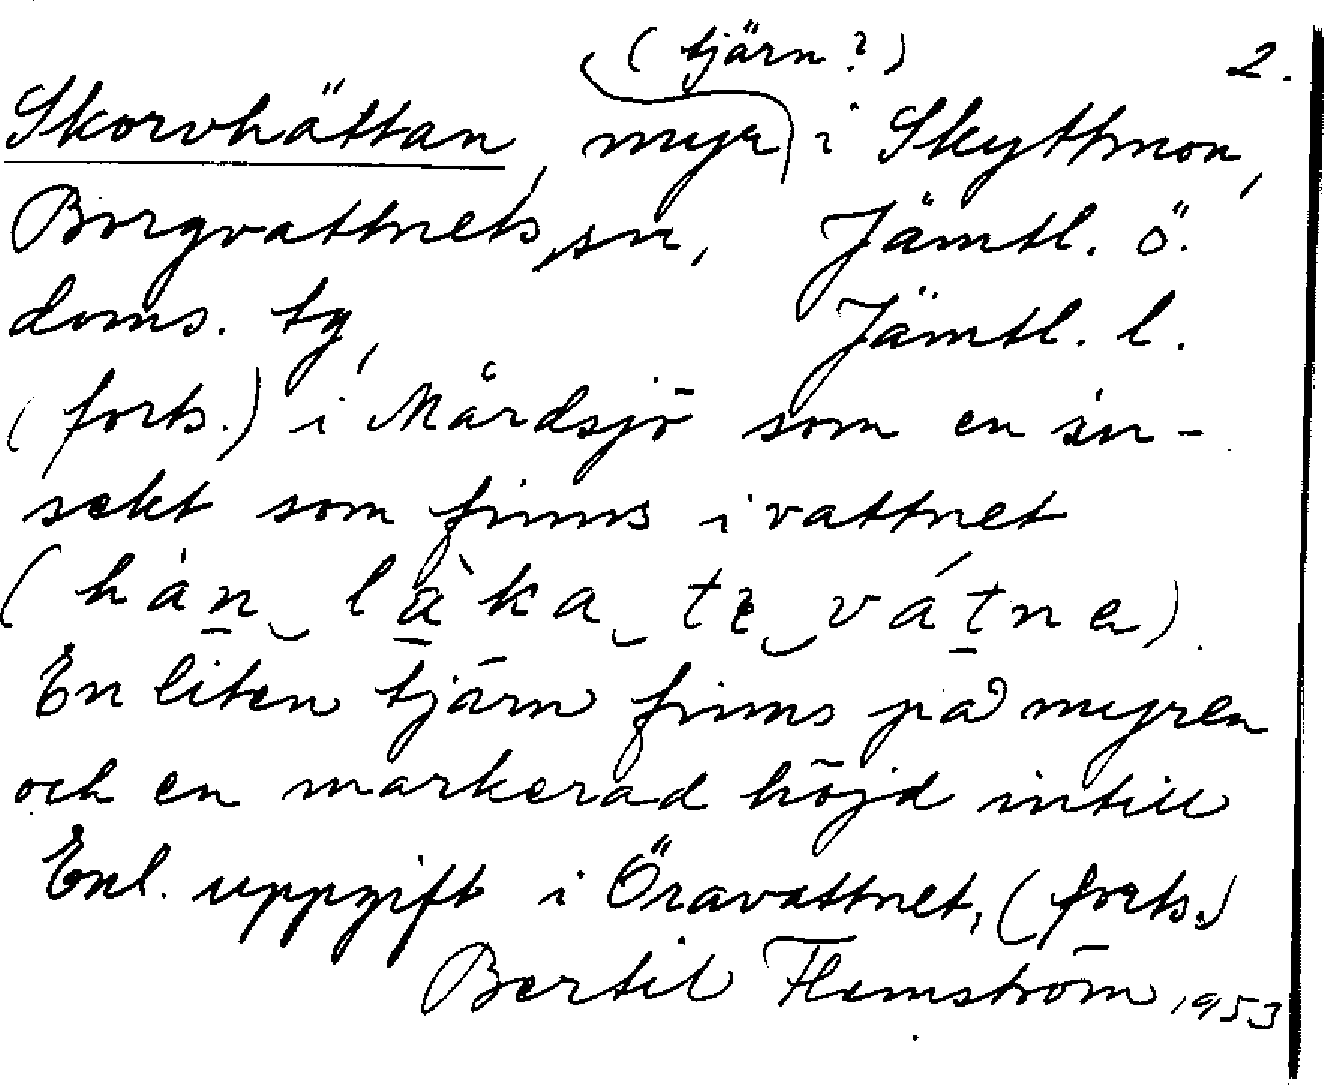 (tjärn?) 2.
Skorvhättan, myr i Skyttmon,
Borgvattnets sn, Jämtl. ö.
doms. tg, Jämtl. l.
(forts.) i Mårdsjö som en in-
sekt som finns i vattnet
En liten tjärn finns på myren
och en markerad höjd intill
Enl. uppgift i Öravattnet, (forts.)
Bertil Flemström 1953